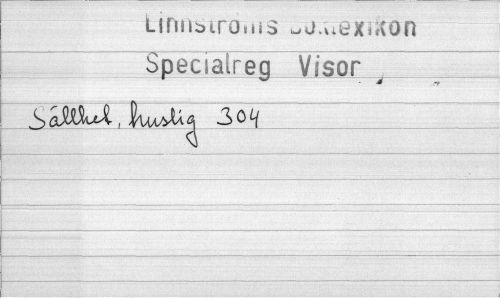 Linnströms Boklexikon
Specialreg Visor
Sällhet, huslig 304